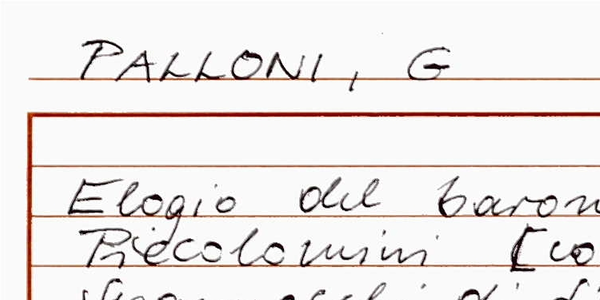 PALLONI, G
Elogio del baron
Piccolomini [co
di